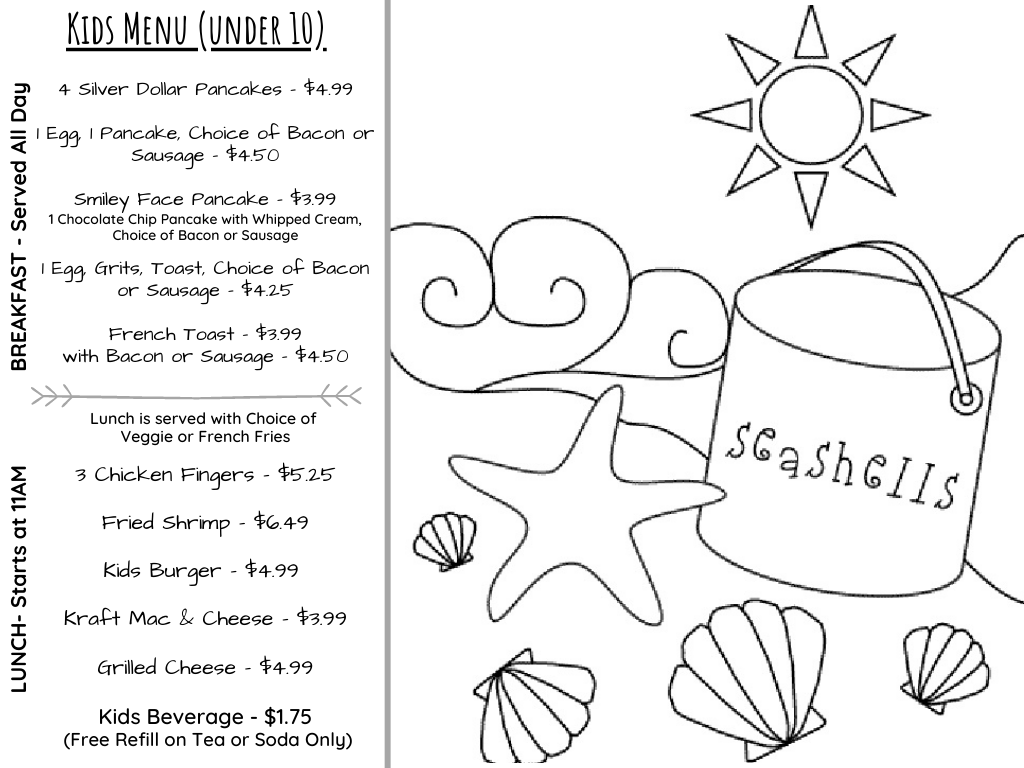 Kids Menu (under 10)
BREAKFAST - Served All Day
4 Silver Dollar Pancakes - $4.99
1 Egg, 1 Pancake, Choice of Bacon or
Sausage - $4.50
Smiley Face Pancake - $3.99
1 Chocolate Chip Pancake with Whipped Cream,
Choice of Bacon or Sausage
1 Egg, Grits, Toast, Choice of Bacon
or Sausage - $4.25
French Toast - $3.99
with Bacon or Sausage - $4.50
LUNCH- Starts at 11AM
Lunch is served with Choice of
Veggie or French Fries
3 Chicken Fingers - $5.25
Fried Shrimp - $6.49
Kids Burger - $4.99
Kraft Mac & Cheese - $3.99
Grilled Cheese - $4.99
Kids Beverage - $1.75
(Free Refill on Tea or Soda Only)
seashells